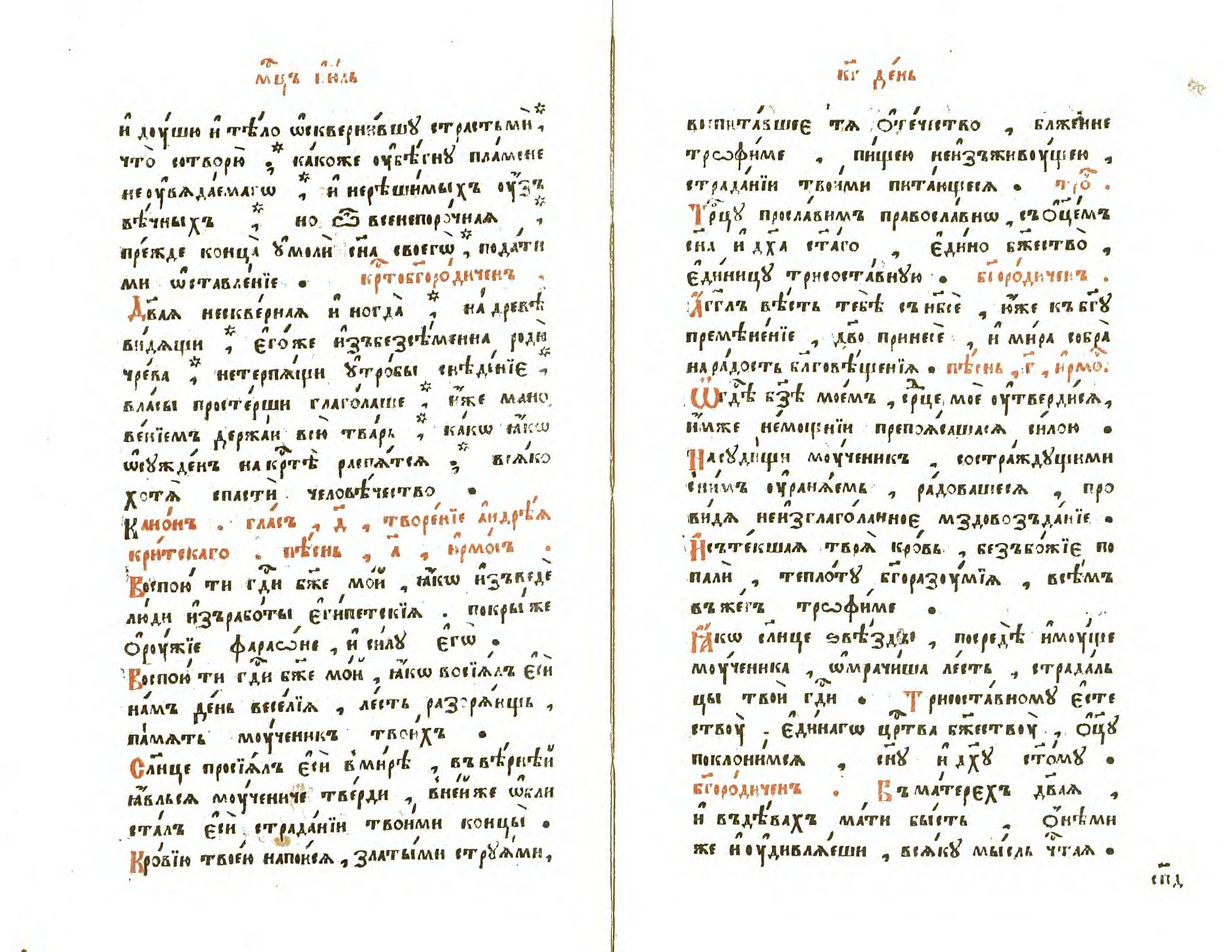 мⷭ҇цъ і҆ю́ль
и҆ доу́шю и҆ тѣ́ло ѡ҆скверни́вшꙋ страстьмѝ *,
что̀ сотворю̀ *, ка́коже оу҆бѣ́гнꙋ пла́мене
неоу҆вѧда́емагѡ *, и҆ нерѣши́мыхъ оу҆́зъ
вѣ́чныхъ *, но ѿ всенепоро́чнаѧ *,
пре́жде конца̀ оу҆молѝ сн҃а своегѡ̀ *, пода́ти
ми ѡ҆ставле́нїе . крⷭ҇тобг҃оро́диченъ .
Дв҃аѧ нескве́рнаѧ и҆ногда̀ *, на дре́вѣ
ви́дѧщи *, є҆го́же и҆зъ безсѣ́менна родѝ
чре́ва *, нетерпѧ́щи оу҆тро́бы снѣде́нїє *,
власы̀ просте́рши глаго́лаше *, и҆́же мано
ве́нїемъ держа́и всю̀ тва́рь *, ка́кѡ ꙗ҆́кѡ
ѡ҆сужде́нъ на крⷭ҇тѣ̀ распѧ́тсѧ *, всѧ́ко
хотѧ̀ спастѝ человѣ́чество .
Кано́нъ . гла́съ , д҃ , творе́нїе а҆ндре́ѧ
кри́тскаго . пѣ́снь , а҃ , і҆рмо́съ .
Воспою́ ти гдⷭ҇и бж҃е мо́й , ꙗ҆́кѡ и҆зъведѐ
лю́ди и҆зърабо́ты є҆ги́петскїѧ . покры́ же
ѻ҆роу́жїе фараѡ́не , и҆ си́лꙋ є҆гѡ̀ .
Воспою́ ти гдⷭ҇и бж҃е мо́й , ꙗ҆́кѡ восїѧ́лъ є҆сѝ
на́мъ де́нь весе́лїѧ , ле́сть разорѧ́ѧшь ,
па́мѧть моу́ченикъ твои́хъ .
Сл҃нце просїѧ́лъ є҆сѝ в ми́рѣ , въ вѣ́рнѣй
ꙗ҆́вльсѧ моу́чениче тве́рди , в не́йже ѡ҆бли
ста́лъ є҆сѝ страда́нїи твои́ми концы̀ .
Кро́вїю твое́ю напои́сѧ , златы́ми стрꙋѧ́ми ,
кг҃ де́нь
воспита́вшеє тѧ ѻ҆те́чество , блаже́нне
трѡфи́ме , пи́щею неи҆зъживоу́щею ,
страда́нїи твои́ми пита́ющесѧ . трⷪ҇ .
Трⷪ҇цꙋ просла́вимъ правосла́внѡ , съ ѻ҆ц҃е́мъ
сн҃а и҆ дх҃а ст҃а́го , є҆ди́но бжⷭ҇ество̀ ,
є҆ди́ницꙋ трисоста́вную . бг҃оро́диченъ .
А҆́гг҃лъ вѣ́сть тебѣ̀ съ нб҃сѐ , ю҆́же къ бг҃ꙋ
премѣне́нїе , дв҃о принесѐ , и҆ ми́ра собра̀
на ра́дость бл҃говѣ́щенїѧ . пѣ́снь , г҃ , і҆рмо́ .
Ѡ҆ гдⷭ҇ѣ бз҃ѣ мое́мъ , срⷣце моѐ оу҆тверди́сѧ ,
и҆́мже не́мощнїи препоѧ́сашасѧ си́лою .
На соуди́щи моу́ченикъ , сострáждущими
сни́мъ оу҆ранѧ́емь , ра́довашесѧ , про
ви́дѧ неи҆зглаго́ланноє мздовозъда́нїе .
И҆сте́кшаѧ твоѧ̀ кро́вь , безъбо́жїє по
палѝ , теплотꙋ̀ бг҃оразоу́мїѧ , всѣ́мъ
въжегъ трѡфи́ме .
Ꙗ҆́кѡ сл҃нце ѕвѣ́зды , посредѣ̀ и҆моу́ще
моу́ченика , ѡ҆мрачи́ша ле́сть , страда́ль
цы твоѝ гдⷭ҇и . Трисоста́вномꙋ є҆сте
ствоу̀ . є҆ди́нагѡ црⷭ҇тва бжⷭ҇ествоу̀ , ѻ҆ц҃ꙋ̀
поклони́мсѧ , сн҃ꙋ и҆ дх҃ꙋ ст҃о́мꙋ .
бг҃оро́диченъ . Въ ма́терехъ дв҃аѧ ,
и҆ въ дѣ́вахъ ма́ти бы́сть , ѻ҆нѣ́ми
же и҆ оу҆дивлѧ́еши , всѧ́кꙋ мы́сль чⷭ҇таѧ .
сп҃д